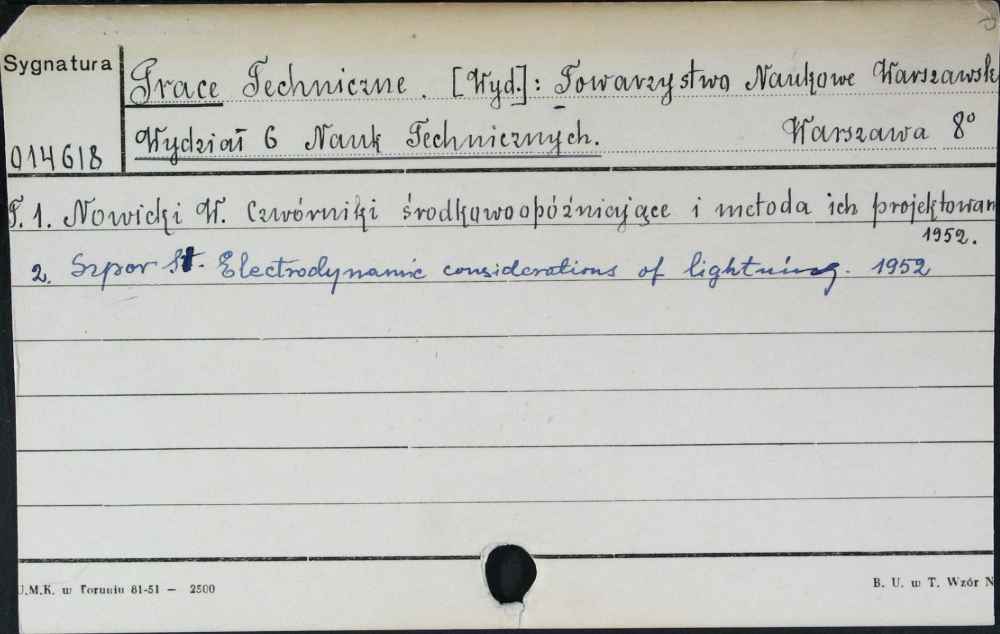 Sygnatura
Prace Techniczne. [Wyd.]: Towarzystwo Naukowe Warszawsk
Wydział 6 Nauk Technicznych. Warszawa 8°
014618
T. 1. Nowicki W. Czwórniki środkowoopóźniające i metoda ich projektowan
1952.
2. Szpor St. Electrodynamic considerations of lightning. 1952
U.M.K. w Toruniu 81-51 — 2500
B. U. w T. Wzór N